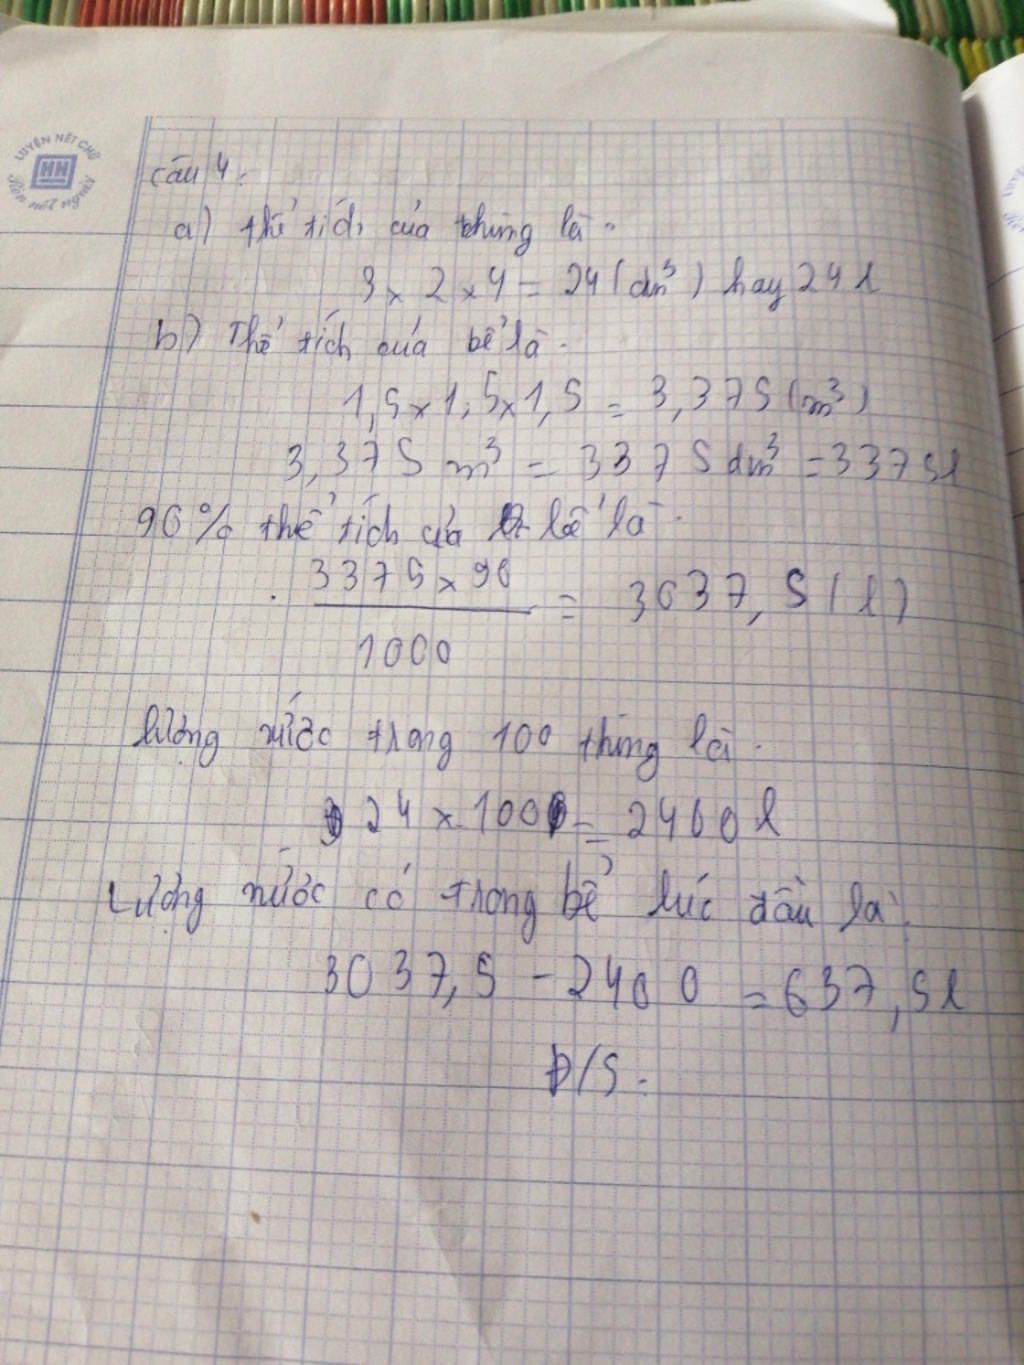 LUYỆN NÉT CHỮ
HH
Rèn nết người
Câu 4:
a) thể tích của thùng là:
3 x 2 x 4 = 24 (dm³) hay 24 l
b) Thể tích của bể là:
1,5 x 1,5 x 1,5 = 3,375 (m³)
3,375 m³ = 3375 dm³ = 3375 l
90% thể tích của bể là:
3375 x 90
= 3037,5 (l)
1000
lượng nước trong 100 thùng là:
24 x 100 = 2400 l
Lượng nước có trong bể lúc đầu là:
3037,5 - 2400 = 637,5 l
Đ/S: